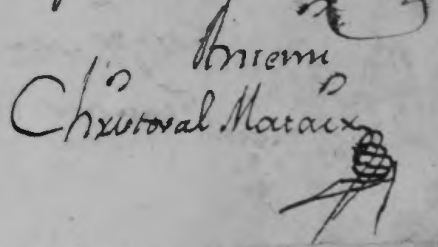 Antemi
Chrͥstoval Mataix